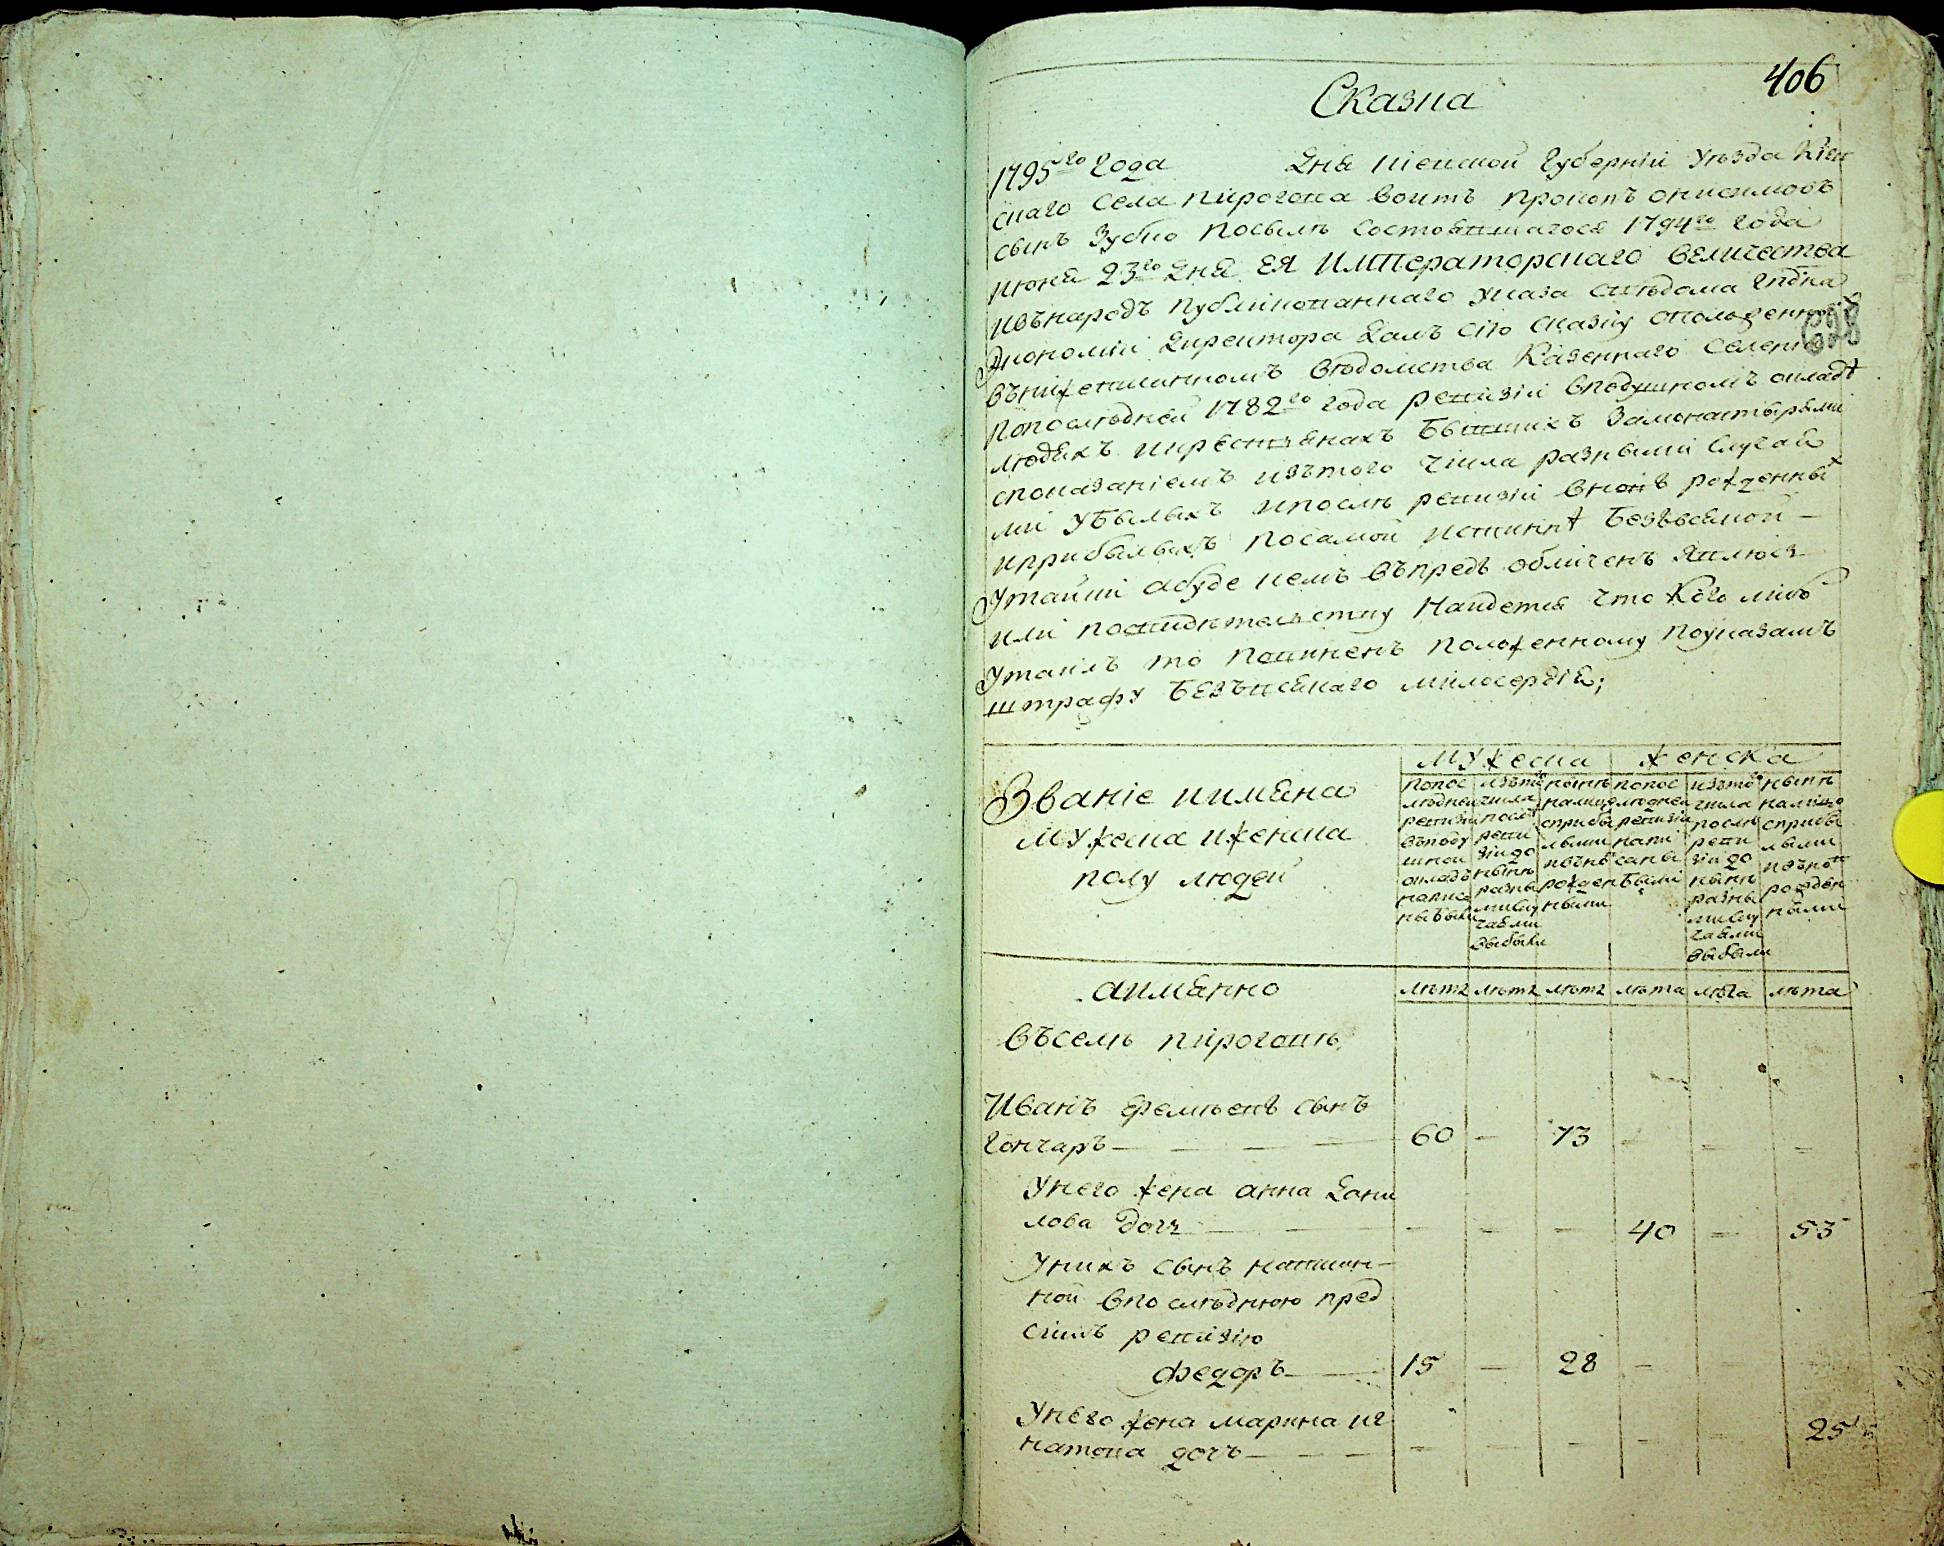 406
Сказка
1795го года Дня Киевской Губернии Уезда Киев
скаго села Пирогова воитъ Прокопъ Онисимовъ
сынъ Зубко посыле состоявшагося 1794го года
июня 23го дня ЕЯ ИМПЕРАТОРСКАГО величества
ивънародъ публикованнаго указа сведома Гпдна
Экономии директора далъ сию сказку оположенных
въ вѣдомства казеннаго селени
попоследней 1782го года ревизии вподушномъ окладѣ
людяхъ икрестянахъ бывшихъ замонастырями
споказаниемъ изътого числа разными случая
ми убылыхъ ипосле ревизии вновь рожденных
иприбылыхъ посамой истиннѣ безвсякой
утайки абуде кемъ въпредь обличенъ явлюся
или посвидѣтелству найдется что кого либо
утаилъ то повиненъ положенному поуказамъ
штрафу безъвсякаго милосердия;
Звание иимяна
мужеска иженска
полу людей
мужеска женска
попос лѣдней ревизии въподу шной окладъ написа ны были
изътого числа послѣ реви зии до нынѣ разны ми слу чаями выбыли
нынѣ налицо сприбы лыми ивънов рожден ными
попос лѣдней ревизии напи саны были
изътого числа послѣ реви зии до нынѣ разны ми слу чаями выбыли
нынѣ налицо сприбы лыми ивънов рожден ными
аимянно
лѣта лѣта лѣта лѣта лѣта лѣта
въселѣ Пироговѣ
Иванъ Еремѣевъ сынъ
Гончаръ — 60 — 73 — — —
Унего жена Анна Дани
лова дочь — — — — 40 — 53
Унихъ сынъ написан-
ной впослѣднюю пред
симъ ревизию
Федоръ — 15 — 28 —
Унего жена Марина Иг
натова дочь — — — — — — 25